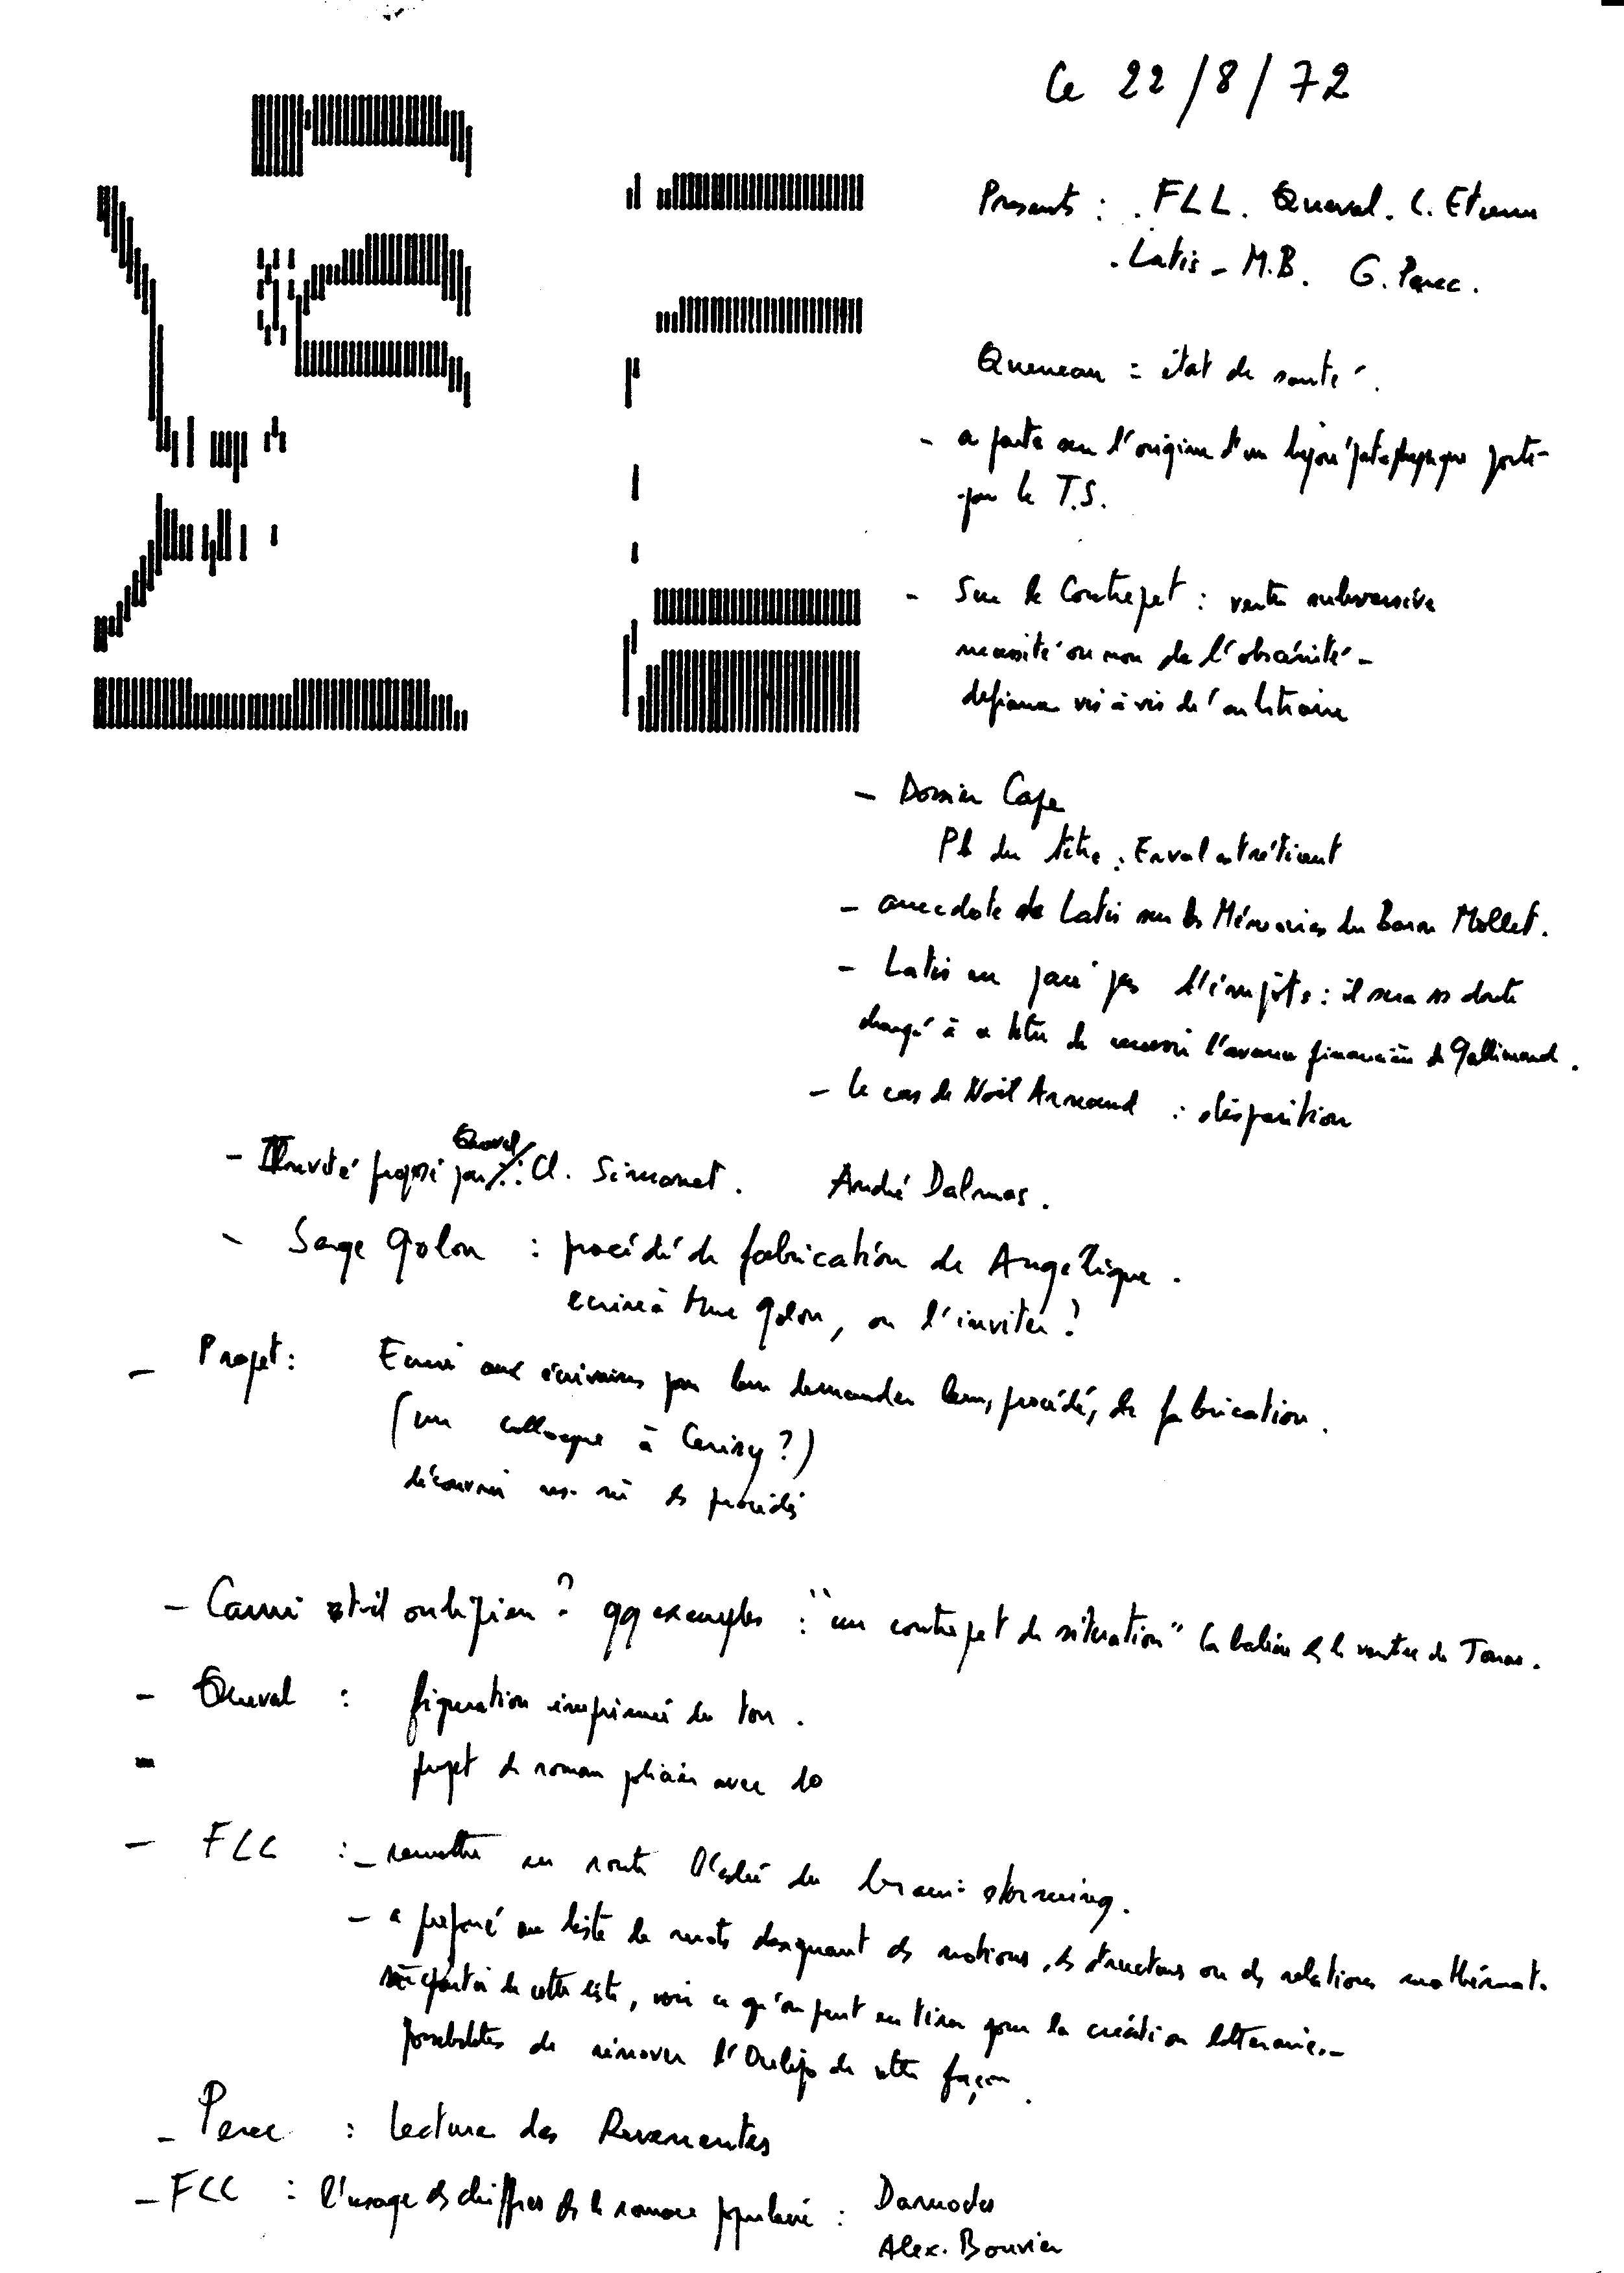 Ce 22/8/72
Presents : . FLL. Queval. C. Etienne
. Latis - M.B. G. Perec.
Queneau = état de santé.
- a parte sur l'origine d'un bijou 'pataphysique porté
par le T.S.
- Sur le Contrepet : vertu subversive
necessité ou non de l'obscénité -
defiance vis à vis de l'
- Dossier Cape
Pb du titre : Enval
- anecdote de Latis sur les Mémoires du Baron Mollet.
- Latis ne paie pas d'impôts : il sera ss doute
chargé à ce titre de recevoir l'avance financière de Gallimard.
- le cas de Noël Arnaud : disparition
Queval
- Invité proposé par : Cl. Simonet. André Dalmas.
- Serge Golon : procédé de fabrication de Angélique.
ecrire à Mme Golon, ou l'inviter ?
- Projet : Ecrire aux écrivains pour leur demander leurs procédés de fabrication.
(un colloque à Cerisy ?)
découvrir les procédés
- Cami est-il oulipien ? qq exemples : "un contrepet de situation" la baleine ds le ventre de Jonas.
- Queval : figuration imprimée du ton.
- projet de roman policier avec 10
- FLL : - remettre en route l'idée du brain-storming.
- a préparé une liste de mots designant des notions, des structures ou des relations mathémat.
à partir de cette liste, voir ce qu'on peut en tirer pour la création litteraire. -
possibilités de rénover l'Oulipo de cette façon.
- Perec : Lecture des Revenentes
- FLL : l'usage des chiffres ds le roman populaire : Darnodes
Alex. Bouvier